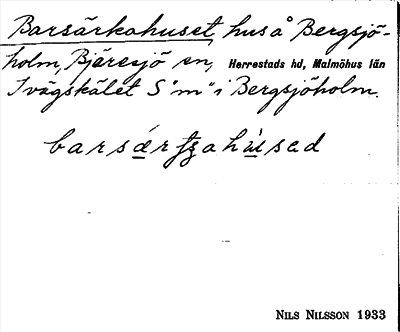 Barsärkahuset, hus å Bergsjö-
holm, Bjäresjö sn, Herrestads hd, Malmöhus län
I vägskälet S "m" i Bergsjöholm.
barsærtʒahùsad
NILS NILSSON 1933